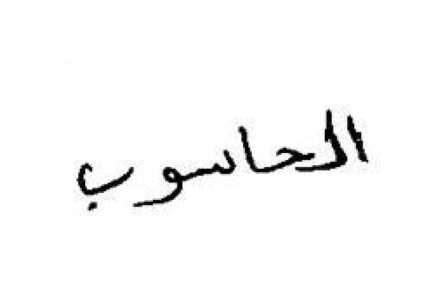 الحاسوب